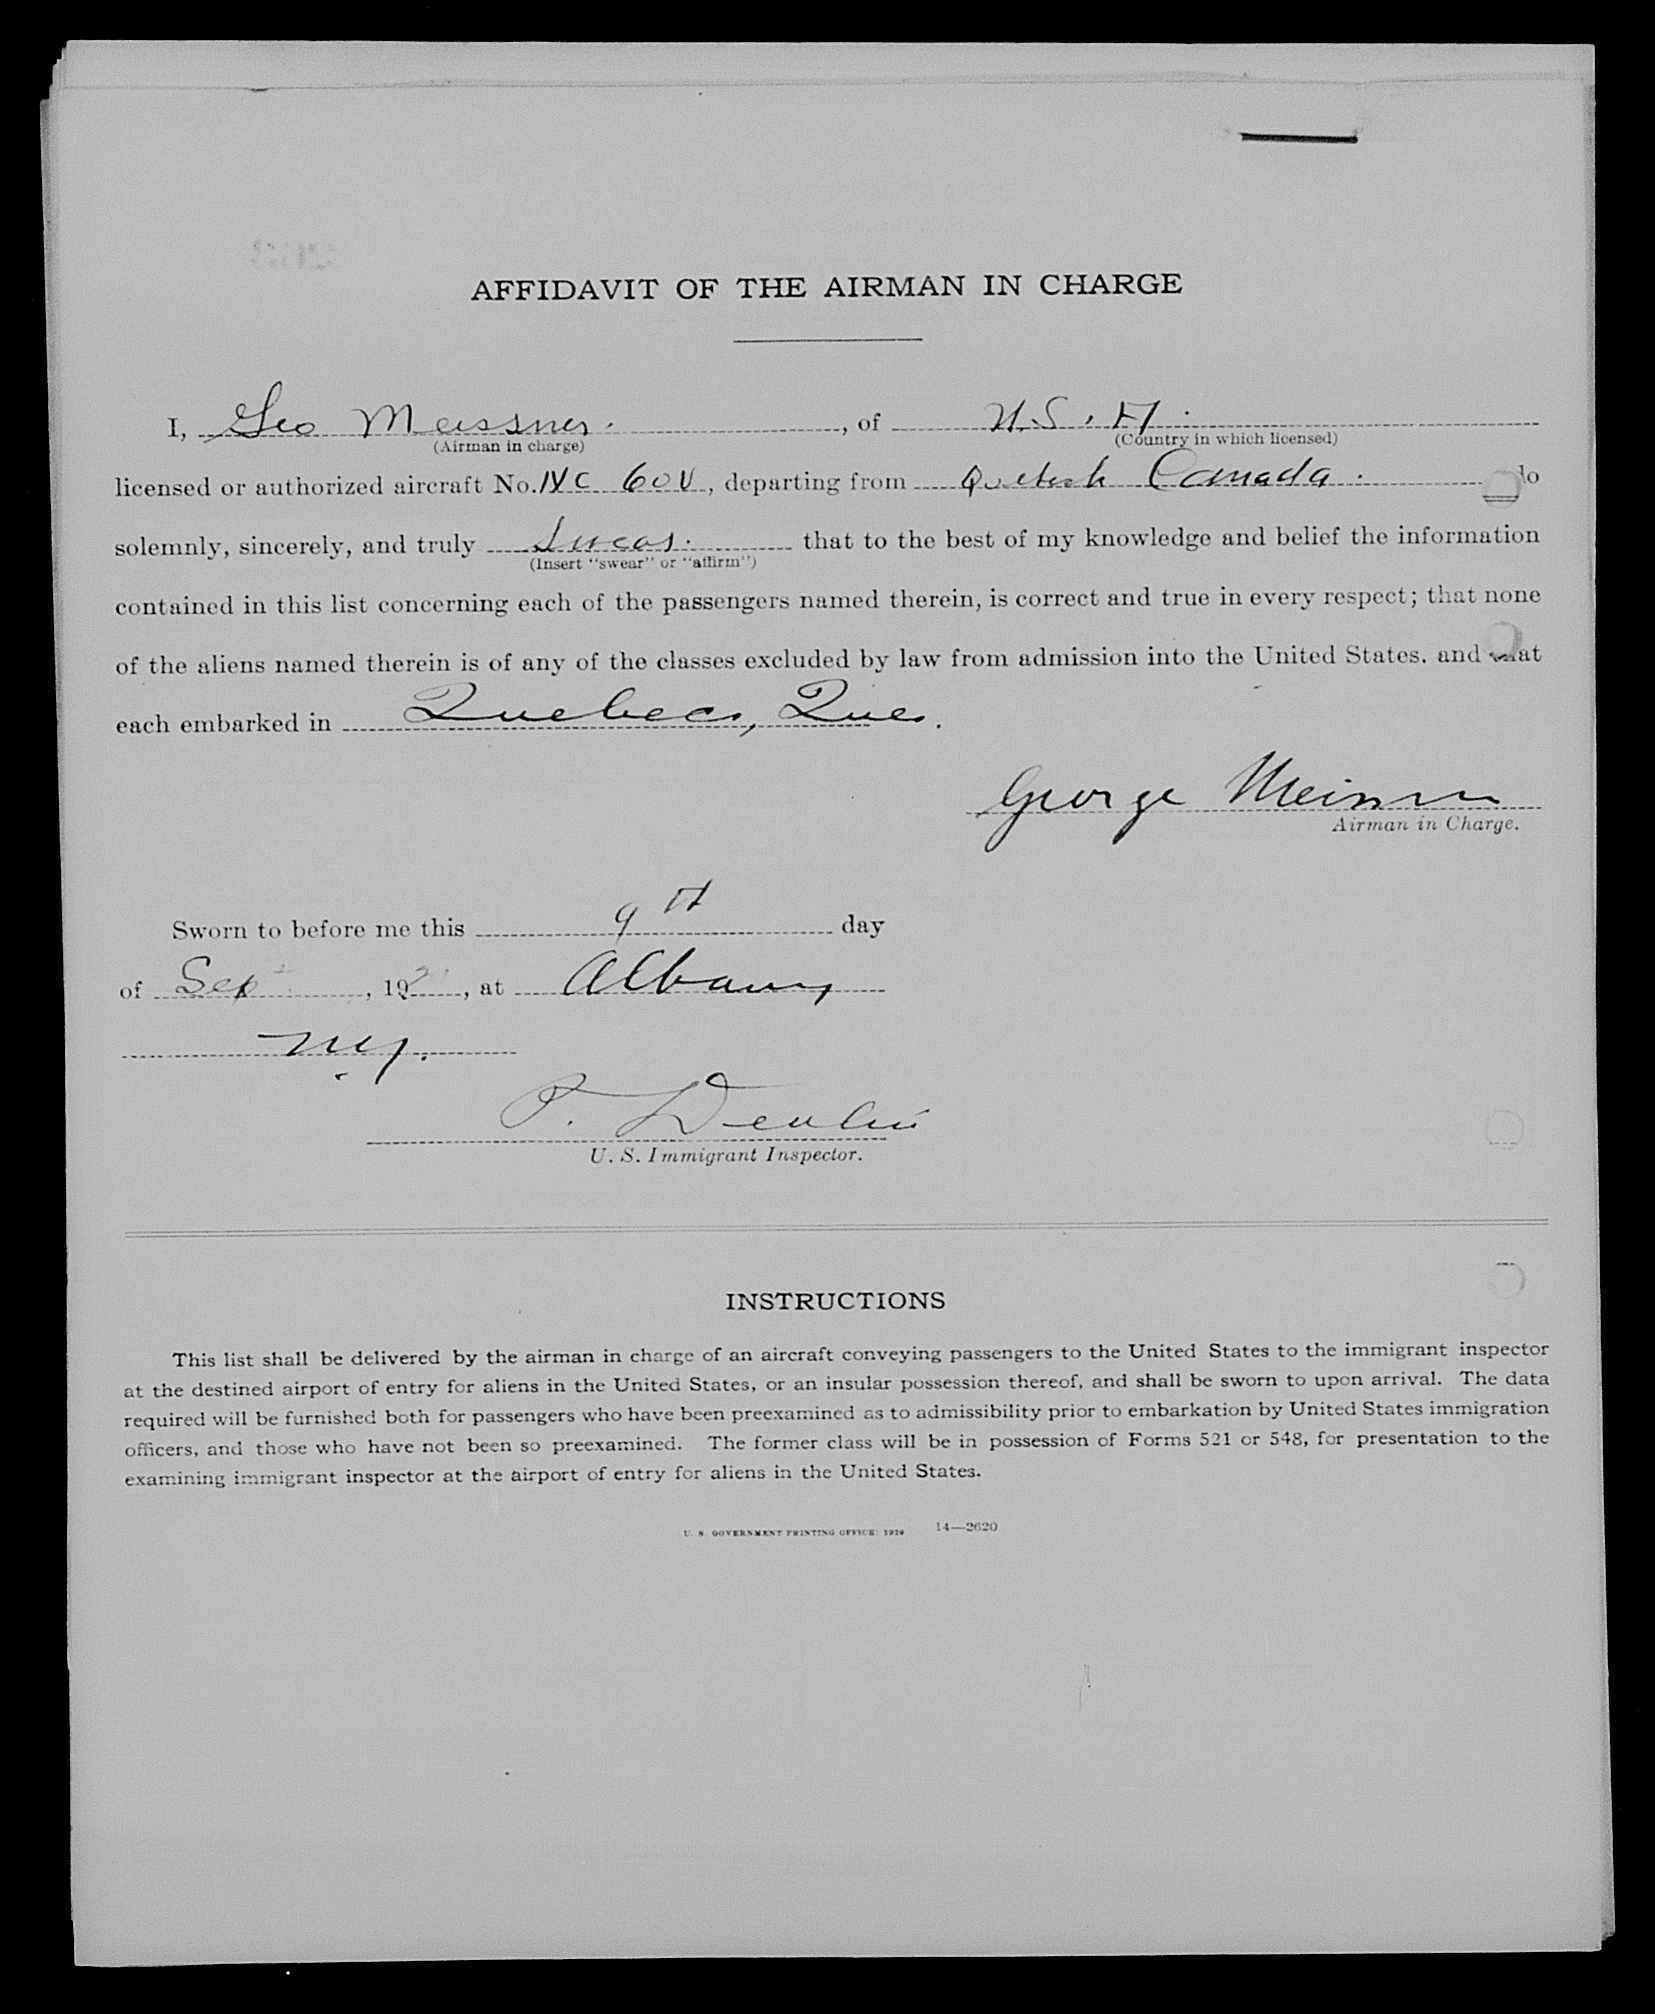 AFFIDAVIT OF THE AIRMAN IN CHARGE
I, Geo Meissner. , of U.S.A.
(Airman in charge) (Country in which licensed)
licensed or authorized aircraft No. NC 60V, departing from Canada. do
solemnly, sincerely, and truly swear that to the best of my knowledge and belief the information
(Insert "swear" or "affirm")
contained in this list concerning each of the passengers named therein, is correct and true in every respect; that none
of the aliens named therein is of any of the classes excluded by law from admission into the United States, and that
each embarked in Quebec, Que.
George Meissner
Airman in Charge.
Sworn to before me this 9th day
of Sep , 19 , at Albany
N.Y.
P. Devlin
U. S. Immigrant Inspector.
INSTRUCTIONS
This list shall be delivered by the airman in charge of an aircraft conveying passengers to the United States to the immigrant inspector
at the destined airport of entry for aliens in the United States, or an insular possession thereof, and shall be sworn to upon arrival. The data
required will be furnished both for passengers who have been preexamined as to admissibility prior to embarkation by United States immigration
officers, and those who have not been so preexamined. The former class will be in possession of Forms 521 or 548, for presentation to the
examining immigrant inspector at the airport of entry for aliens in the United States.
U. S. GOVERNMENT PRINTING OFFICE: 1929 14—2620